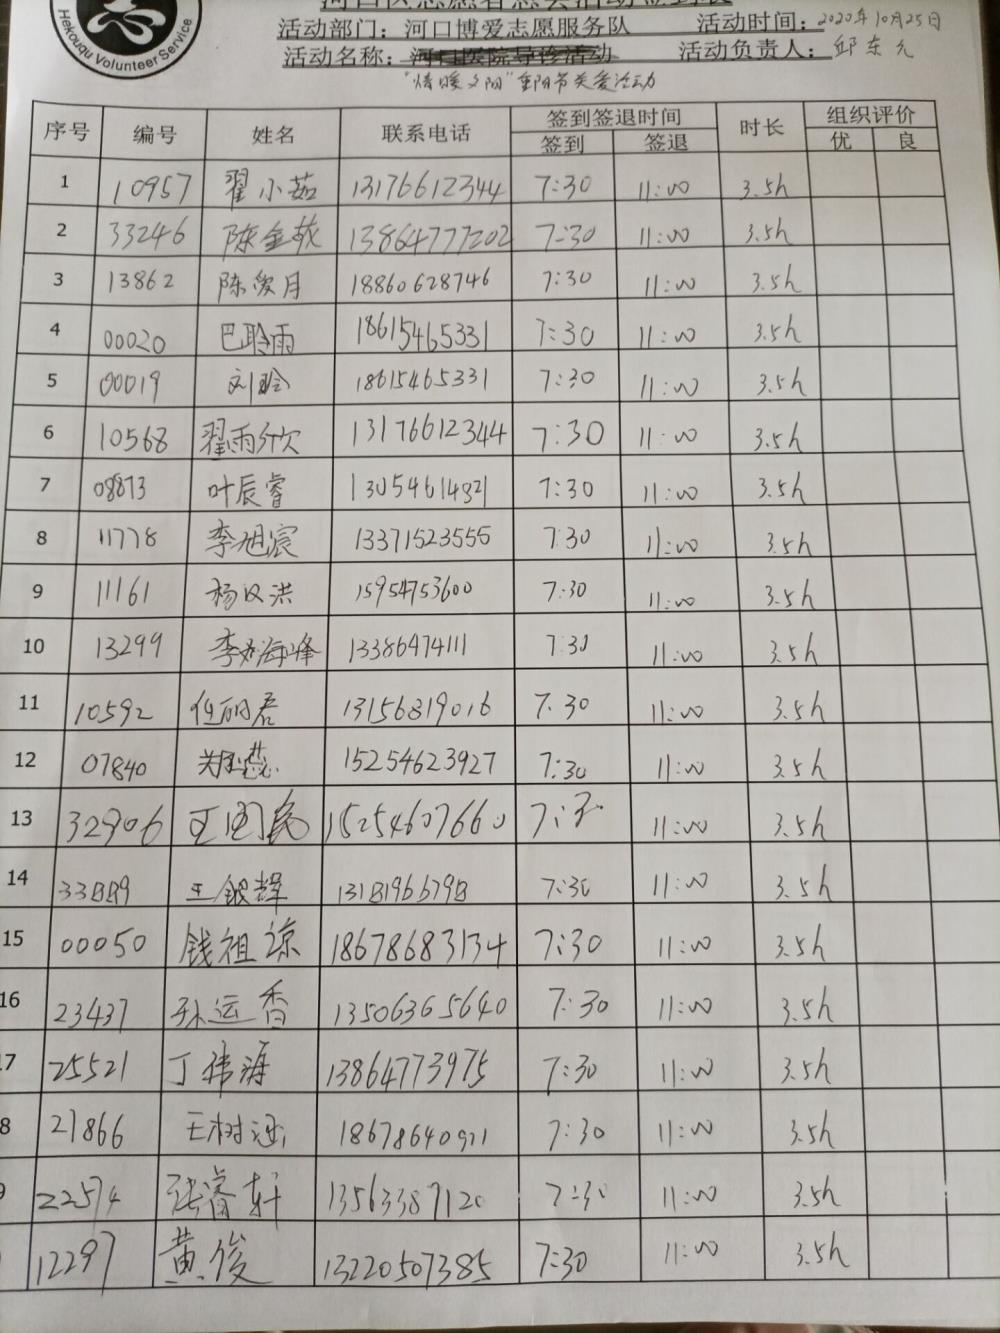 Hekouqu Volunteer Service
河口区志愿者总会活动签到表
活动部门：河口博爱志愿服务队 活动时间：2020年10月25日
活动名称：河口医院导诊活动 活动负责人：邱东允
"情暖夕阳"重阳节关爱活动
序号 编号 姓名 联系电话 签到签退时间 时长 组织评价
签到 签退 优 良
1 10957 翟小茹 13176612344 7:30 11:00 3.5h
2 33246 陈金 13864777202 7:30 11:00 3.5h
3 13862 陈爱月 18860628746 7:30 11:00 3.5h
4 00020 巴聆雨 18615465331 7:30 11:00 3.5h
5 00019 刘聆 18615465331 7:30 11:00 3.5h
6 10568 翟雨欣 13176612344 7:30 11:00 3.5h
7 08873 叶辰睿 13054614321 7:30 11:00 3.5h
8 11778 李旭宸 13371523555 7:30 11:00 3.5h
9 11161 杨汉洪 15954753600 7:30 11:00 3.5h
10 13299 李海峰 13386474111 7:30 11:00 3.5h
11 10592 任丽君 13156819016 7:30 11:00 3.5h
12 07840 15254623927 7:30 11:00 3.5h
13 32906 王国民 15254607660 7:30 11:00 3.5h
14 王银辉 7:30 11:00 3.5h
15 00050 钱祖谅 18678683134 7:30 11:00 3.5h
16 23437 孙运香 13506365640 7:30 11:00 3.5h
7 25521 丁祎海 13864773975 7:30 11:00 3.5h
8 21866 王树 18678640911 7:30 11:00 3.5h
9 22574 张睿轩 13563387120 7:30 11:00 3.5h
12297 黄俊 13220507385 7:30 11:00 3.5h